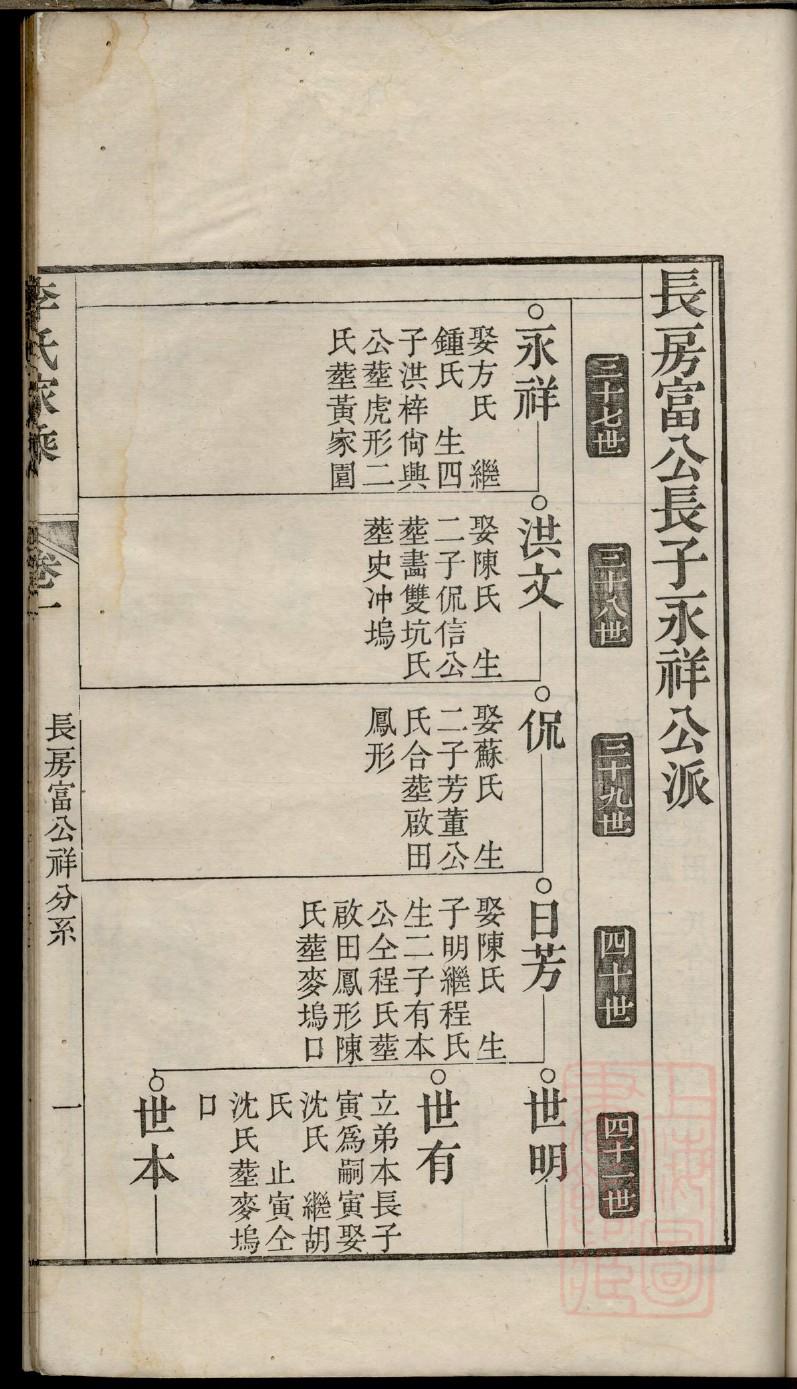 長房富公長子永祥公派
三十七世
三十八世
三十九世
四十世
四十一世
永祥
娶方氏　繼
鍾氏　生四
子洪梓尙興
公塟虎形二
氏塟黃家園
洪文
娶陳氏　生
二子侃信公
塟畵雙坑氏
塟史冲塢
侃
娶蘇氏　生
二子芳董公
氏合塟啟田
鳳形
日芳
娶陳氏　生
子明繼程氏
生二子有本
公仝程氏塟
啟田鳳形陳
氏塟麥塢口
世明
世有
立弟本長子
寅爲嗣寅娶
沈氏　繼胡
氏　止寅仝
沈氏塟麥塢
口
世本
李氏家乘
卷一
長房富公祥分系
一